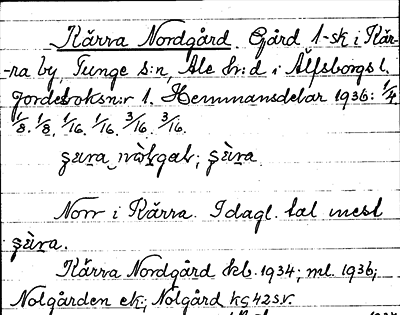 Kärra Nordgård. Gård 1-sk i Kär-
-ra by, Tunge s:n, Ale h:d i Älfsborgs l.
Jordeboksn:r 1. Hemmansdelar 1936: 1/4
1/8. 1/8, 1/16. 1/16. 3/16. 3/16.
Norr i Kärra. I dagl. tal mest
Kärra Nordgård kb. 1934; ml. 1936;
Nolgården ek.; Nolgård kG 42 SV.